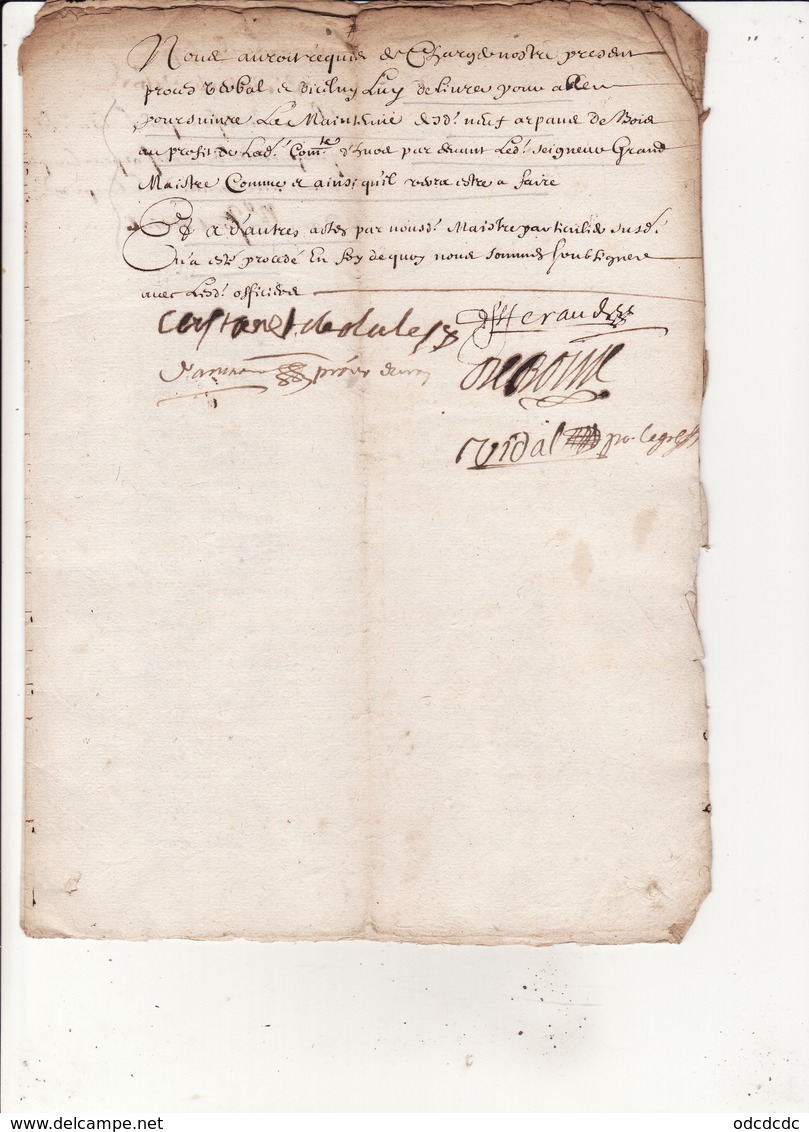 Nous auroit requis de Charge nostre present
proces verbal et dicelluy Luy delivrer pour aller
poursuivre Le Maintenie desd. neuf arpans de Bois
au profit de Lad. Com.te par devant Led. seigneur Grand
Maistre Comme et ainsi qu'il verra estre a faire
Et a d'autres actes par nousd. Maistre particulier susd.
N'a este procedé En foy de quoy nous sommes soubsignes
avec Lesd. officiers
d'Heraud
procr du roy
vidal
odcdcdc